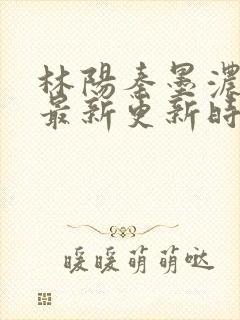 林陽秦墨濃
最新更新時
暖暖萌萌噠